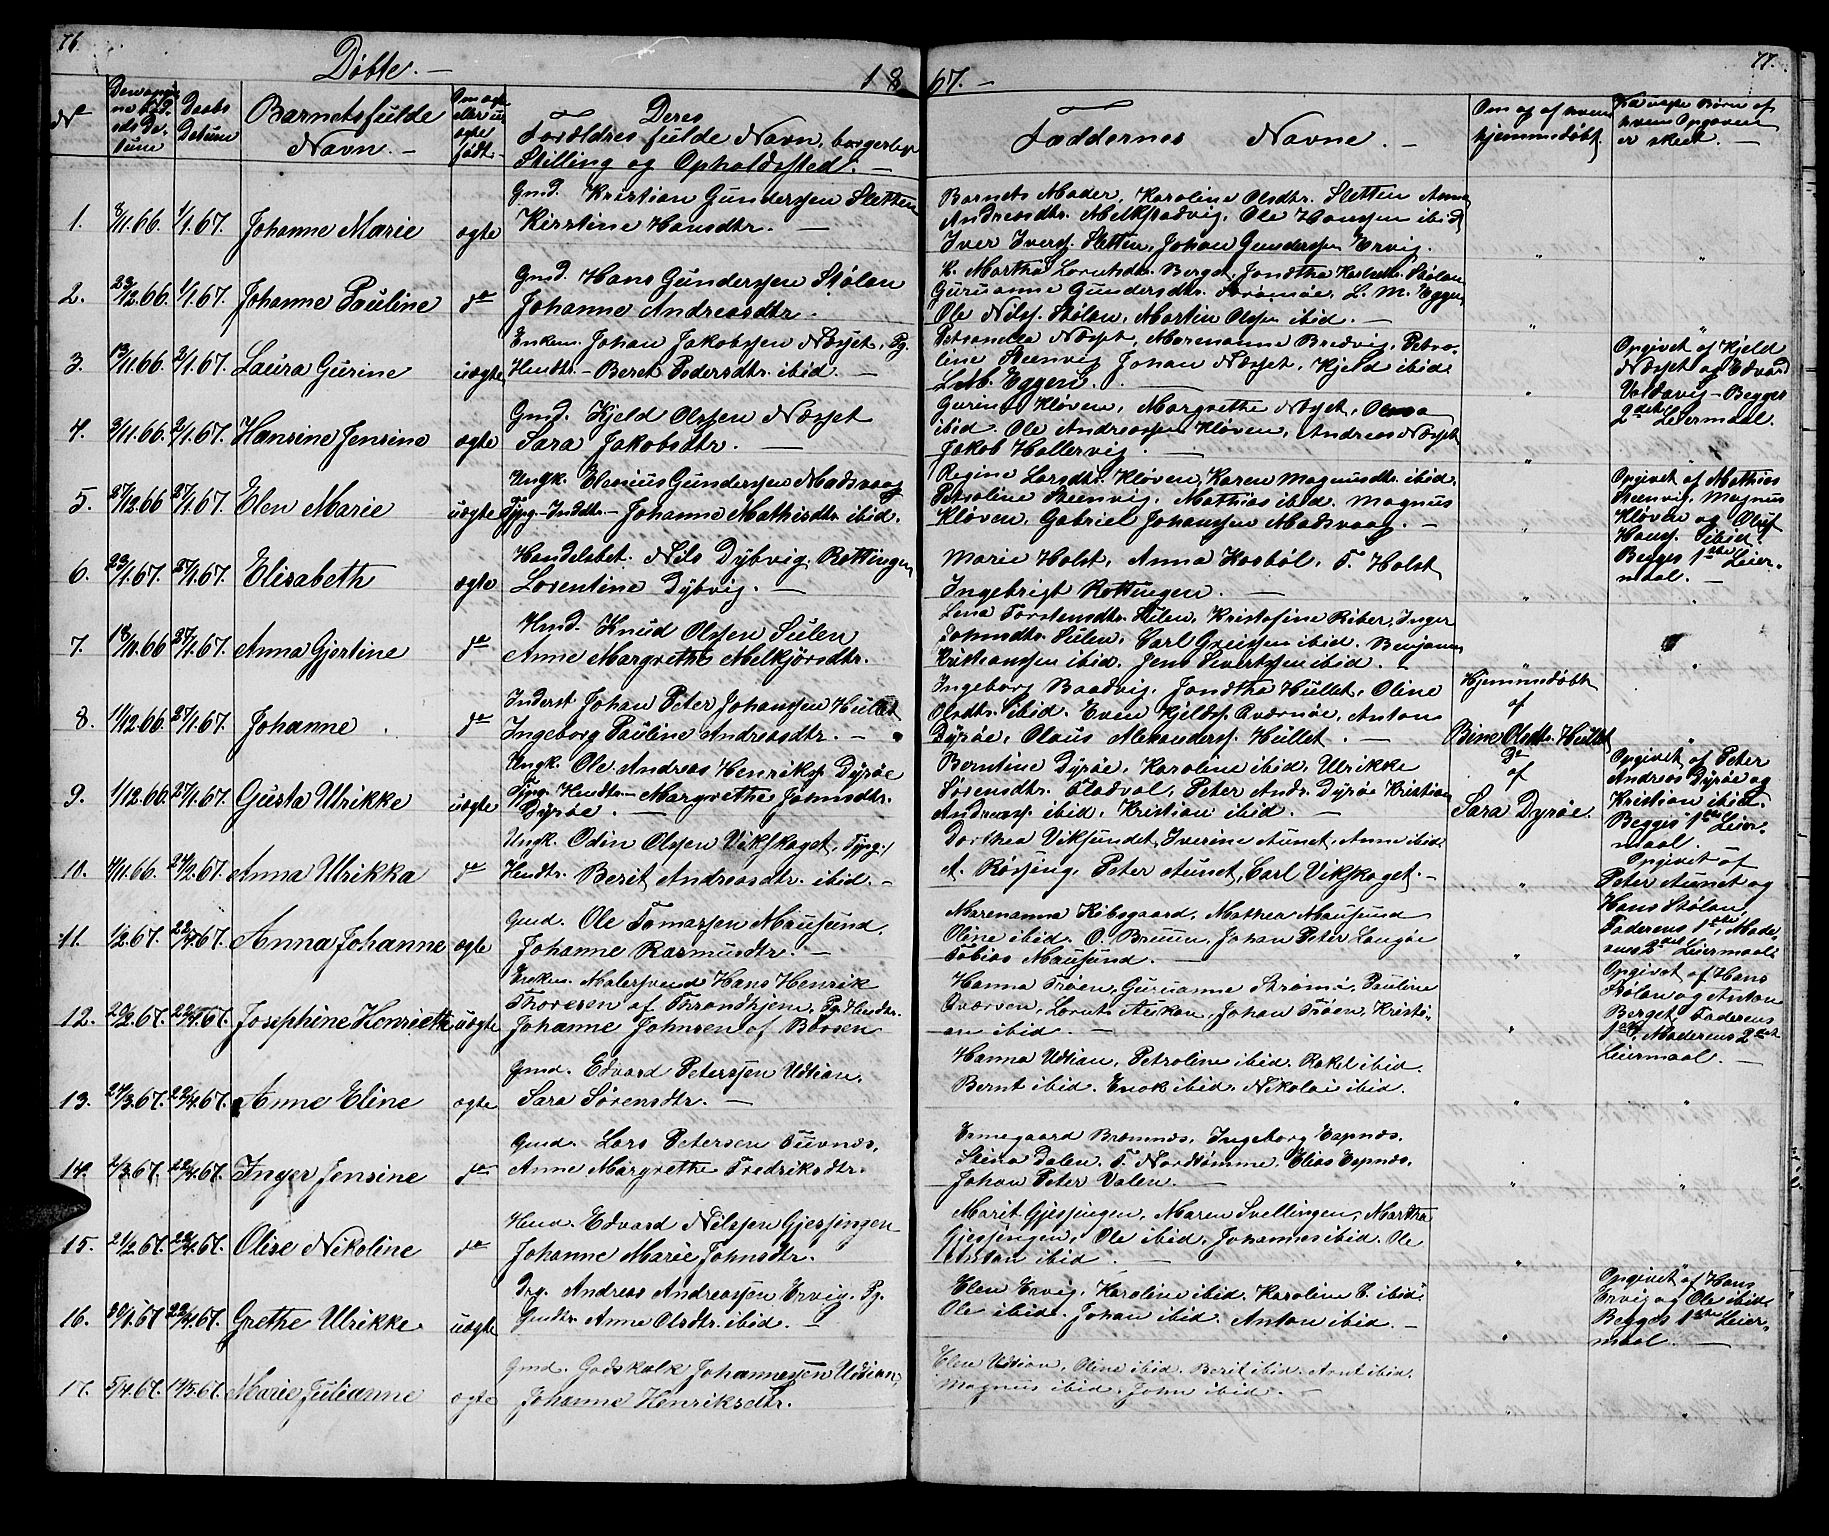 76.
Døbte. —
18
67. —
77.
No
Deres
Daabs Datum
Barnets fulde Navn. —
Om ægte eller uægte født. —
Deres Forældres fulde Navn, borgerlige Stilling og Opholdssted. —
Faddernes Navne. —
Om og af hvem hjemmedøbt.
Fra uægte Børn af hvem Opgaven er skeet. —
1.
3/11.66.
1/1.67.
Johanne Marie
ægte
Gmd. Kristian Gunderssen Sletten
Kirstine Hansdtr. —
Barnets Moder, Karoline Olsdtr. Sletten Anna
Andreasdtr. Melkstadvig, Ole Hanssen ibid
Iver Iverss. Sletten, Johan Gunderssen Ervig.
2.
23/12.66.
1/1.67.
Johanne Pauline
do
Gmd. Hans Gunderssen Stølan
Johanne Andreasdtr. —
K. Martha Lorntsdtr. Berget, Stølan
Guruanna Gundersdtr. Strømøe, L. M. Eggen,
Ole Nilss. Stølan, Martin Olssen ibid. —
3.
13/11.66.
2/1.67.
Laura Gurine
uægte
Enkem. Johan Jakobssen Næsset, Pg.
Husdtr. — Beret Pedersdtr. ibid. —
Petronella Næsset, Marenanna Bredvig, Petro-
line Steenvig Johan Næsset, Kjeld ibid.
L. M. Eggen. —
Opgivet af Kjeld
Næsset og Edvard
Valdavig — Begges
2det Leiermaal.
4.
3/11.66.
2/1.67.
Hansine Jensine
ægte
Gmd. Kjeld Olssen Næsset
Sara Jakobsdtr. —
Gurina Kløven, Margrethe Næsset, Olava
ibid. Ole Andreassen Kløven, Andreas Næsset
Jakob Hallervig. —
5.
27/12.66
27/1.67.
Elen Marie
uægte
Ungk. Elenius Gunderssen Madsvaag
Tjpg. Inddtr. — Johanne Mathisdtr. ibid.
Regine Larsdtr. Kløven, Karen Magnusdtr. ibid.
Petroline Steenvig, Mathias ibid. Magnus
Kløven, Gabriel Johanssen Madsvaag. —
Opgivet af Mathias
Steenvig, Magnus
Kløven og Oluf
Hanss. ibid.
Begges 1ste Leier-
maal. —
6.
23/1.67.
27/1.67.
Elisabeth
ægte
Handelsbet. Nils Dybvig, Rottingen,
Lorentine Dybvig. —
Marie Holst, Anna Kosbøl, T. Holst
Ingebrigt Rottingen. —
7.
18/11.66
27/1.67.
Anna Gjertine
do
Hmd. Knud Olssen Sulen
Anne Margrethe Melkjørsdtr.
Lena Torstensdtr. Sulen, Kristofine Riber, Inger
Johnsdtr. Sulen, Carl Greissen ibid. Benjamin
Kristianssen ibid. Jens Sivertssen ibid. —
8.
1/12.66.
27/1.67.
Johanne
do
Inderst Johan Peter Johanssen Hullet
Ingeborg Pauline Andreasdtr. —
Ingeborg Baadvig, Jondtha Hullet, Oline
Olsdtr. ibid. Even Kjeldss. Qværnøe, Anton
Dyrøe, Olaus Alexanderss. Hullet. —
Hjemmedøbt
af
Bine Olsdtr. Hullet
9.
1/12.66.
27/1.67.
Gusta Ulrikke
uægte
Ungk. Ole Andreas Henrikss. Dyrøe
Tjpg. Husdtr. — Margrethe Johnsdtr.
Dyrøe. —
Berntine Dyrøe, Karoline ibid. Ulrikke
Sørensdtr. Fladvol, Peter Andr. Dyrøe Kristian
Andreass. ibid. Kristian ibid. —
Do
af
Sara Dyrøe.
Opgivet af Peter
Andreas Dyrøe og
Kristian ibid.
Begges 1ste Leier-
maal.
10.
4/11.66.
24/2.67.
Anna Ulrikka
do
Ungk. Odin Olssen Vikskaget, Tjpg.
Husdtr. Berit Andreasdtr. ibid. —
Dorthea Viksundet, Iverine Aunet, Anne ibid.
A. Røssing, Peter Aunet, Carl Vikskaget. —
Opgivet af
Peter Aunet og
Hans Stølan,
Faderens 1ste, Mode
rens 2det Leiermaal.
11.
1/2.67.
22/4.67.
Anna Johanne
ægte
Gmd. Ole Tomassen Mausund,
Johanne Rasmusdtr. —
Marenanna Kibsgaard, Mathea Mausund
Oline ibid. O. Bruun, Johan Peter Langøe
Tobias Mausund. —
12.
20/2.67.
22/4.67.
Josephine Henriette
uægte
Enkem. Malersvend Hans Henrik
Thoresen af Throndhjem, Pg. Husdtr.
Johanne Johnsen af Børsen
Hanna Trøen, Guruanne Strømø, Pauline
Qværven, Lornts Auskan, Johan Trøen, Kristi-
an ibid. —
Opgivet af Hans
Stølan og Anton
Berget, Faderens
1ste, Moderens 2det
Leiermaal. —
13.
27/3.67.
22/4.67.
Anne Eline
ægte
Gmd. Edvard Peterssen Udtian,
Sara Sørensdtr. —
Hanna Udtian, Petroline ibid. Rakel ibid.
Bernt ibid. Enok ibid. Nikolai ibid.
14.
2/3.67.
22/4.67.
Inger Jensine
do
Gmd. Lars Petersen Tuvnæs,
Anne Margrethe Fredriksdtr.
Ermegaard Bremnes, Ingeborg Espnæs,
Stina Dalen, T. Nordtømme, Elias Espnæs,
Johan Peter Valen. —
15.
21/2.67.
22/4.67.
Olise Nikoline
do
Husd. Edvard Nilssen Gjessingen
Johanne Marie Johnsdtr.
Marit Gjessingen, Maren Svellingen, Martha
Gjessingen, Ole ibid. Johannes ibid. Ole
ibid. —
16.
20/1.67
22/4.67.
Grethe Ulrikke
uægte
Drg. Andreas Andreassen Ervig. Pg.
Gmdtr. Anne Olsdtr. ibid. —
Elen Ervig, Karoline ibid. Karoline C. ibid.
Ole ibid. Johan ibid. Anton ibid. —
Opgivet af Hans
Ervig og Ole ibid.
Begges 1ste Leier-
maal. —
17.
5/4.67.
19/5.67.
Marie Julianne
ægte
Gmd. Godskalk Johannessen Udtian,
Johanne Henriksdtr.
Elen Udtian, Oline ibid. Berit ibid. Arnt ibid.
Magnus ibid. John ibid. —